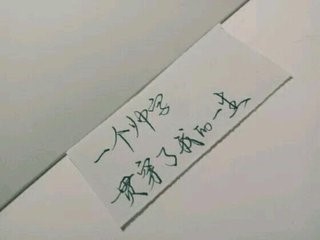 一个帅字
贯穿了我的一生